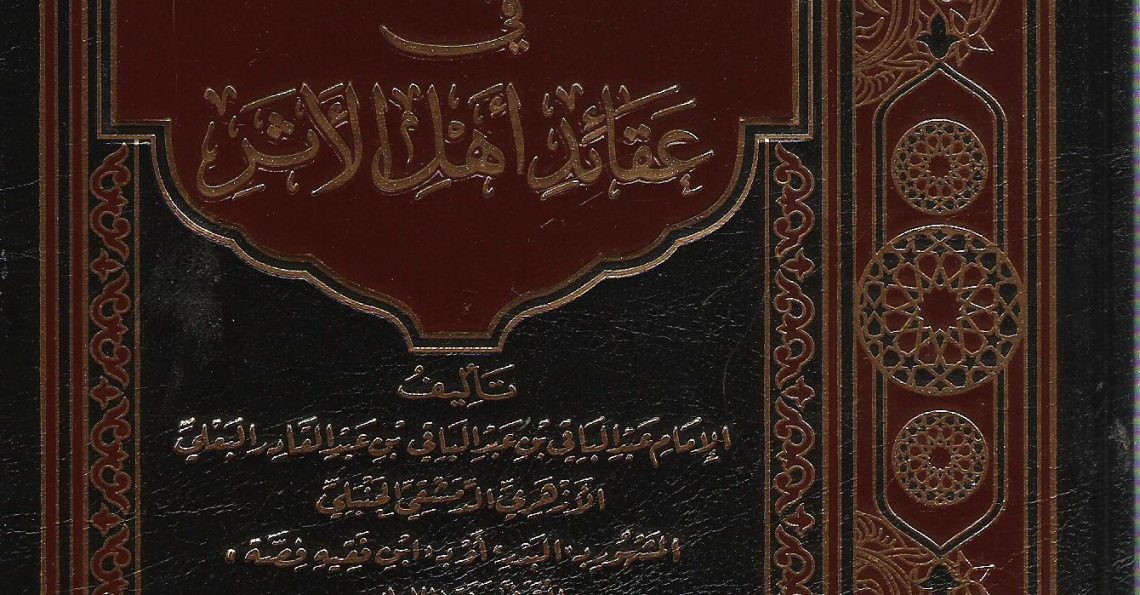 في
عَقَائِدِ أَهْلِ الأَثَرِ
تَأْلِيفُ
الإِمَامِ عَبْدِ الْبَاقِي بْنِ عَبْدِ الْبَاقِي بْنِ عَبْدِ الْقَادِرِ الْبَعْلِيِّ
الأَزْهَرِيِّ الدِّمَشْقِيِّ الْحَنْبَلِيِّ
المَشْهُورِ بـ البَدْرِ أَوْ بـ ابْنِ فَقِيهِ فِصَّة